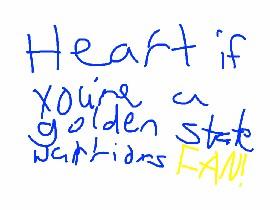 Heart if
you're a
golden state
warriors FAN!